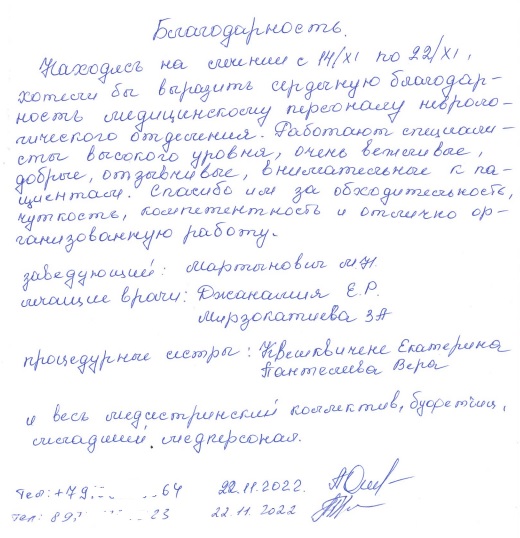 Благодарность.
Находясь на лечении с 14/XI по 22/XI,
хотели бы выразить сердечную благодар-
ность медицинскому персоналу невроло-
гического отделения. Работают специали-
сты высокого уровня, очень вежливые,
добрые, отзывчивые, внимательные к па-
циентам. Спасибо им за обходительность,
чуткость, компетентность и отлично ор-
ганизованную работу.
заведующий: Мартынович М.Н.
лечащие врачи: Джанашия Е.Р.
Мирзокатиева ЗА
процедурные сестры: Квешквичене Екатерина
Пантелеева Вера
и весь медсестринский коллектив, буфетчиц,
младший медперсонал.
тел: +79 64 22.11.2022.
тел: 89 23 22.11.2022